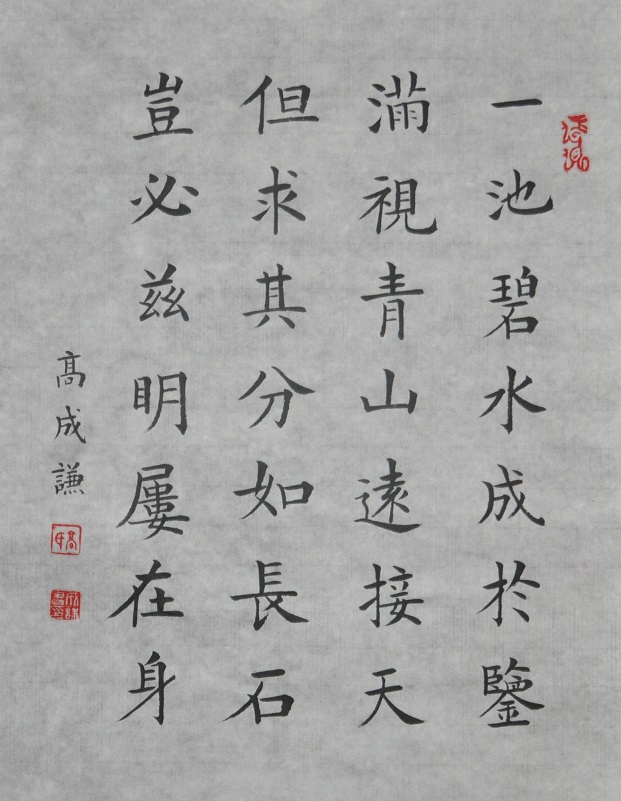 一池碧水成於鑒
滿視青山遠接天
但求其分如長石
豈必茲明屢在身
高成謙